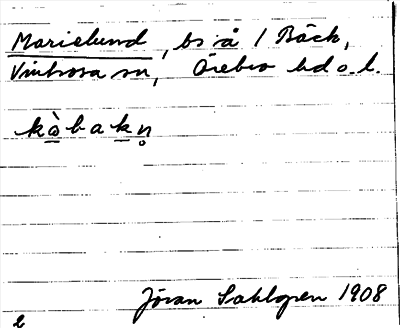 Marielund, bs å 1 Bäck,
Vintrosa sn, Örebro hd o. l.
kòbakn̥
Jöran Sahlgren 1908
2